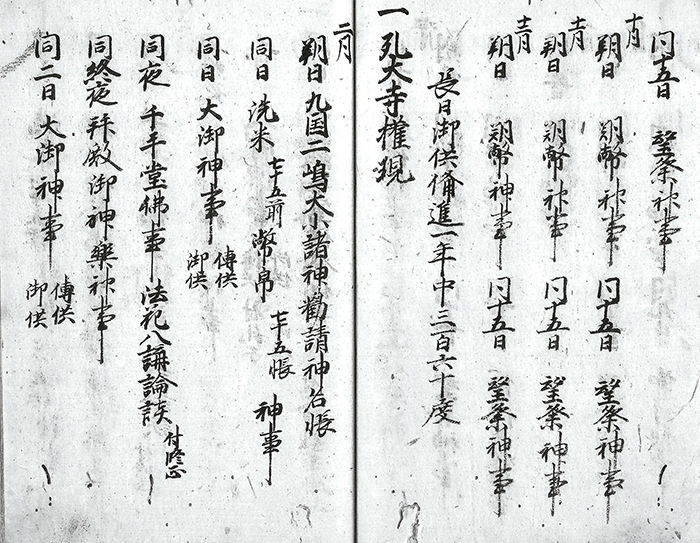 同十五日 望祭神事
十月朔日 朔幣神事 同十五日 望祭神事
十一月朔日 朔幣神事 同十五日 望祭神事
十二月朔日 朔幣神事 同十五日 望祭神事
長日御供備進一年中三百六十度
一 孔大寺權現
二月
朔日 九国二嶋大小諸神勸請神名帳
同日 洗米 七十五前 幣帛 七十五帳 神事
同日 大御神事 傳供 御供
同夜 千手堂佛事 法花八講論談 付修正
同終夜 拜殿御神樂神事
同二日 大御神事 傳供 御供